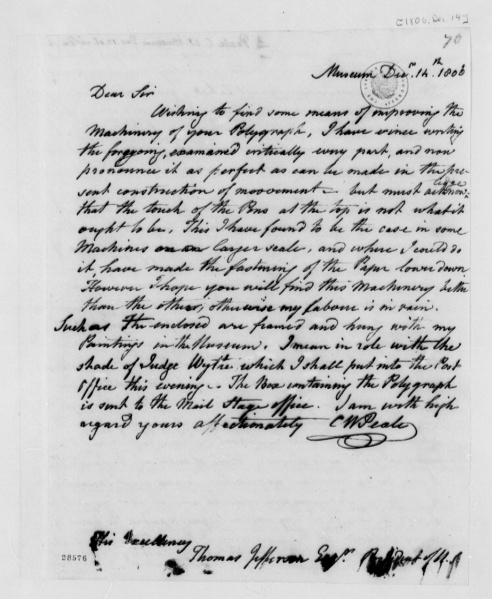 [1806, Dec 14]
70
Museum Decr. 14th 1806
Dear Sir
Wishing to find some means of improving the
Machinery of your Polygraph, I have since writing
the foregoing, examined critically every part, and now
pronounce it as perfect as can be made in the pre-
sent construction of moovement – but must acknow-
ledge
that the touch of the Pens at the top is not what it
ought to be, This I have found to be the case in some
Machines on a larger scale, and where I could do
it, have made the fastening of the Paper lower down
However I hope you will find this Machinery better
than the others, otherwise my labour is in vain.
Such as the enclosed are framed and hung with my
Paintings in the Museum. I mean in role with the
shade of Judge Wythe which I shall put into the Post
Office this evening. – The Box containing the Polygraph
is sent to the Mail Stage office. I am with high
regard yours affectionately CWPeale
His Excellency
Thomas Jefferson Esqr. President of U.S
28576